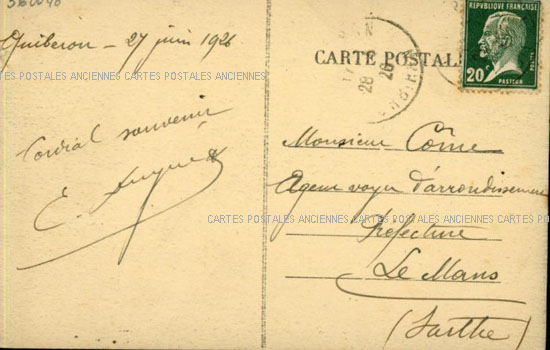 Quiberon - 27 juin 1926
Cordial souvenir
E.
CARTE POSTALE
28
26
RÉPUBLIQUE FRANÇAISE
20
PASTEUR
Monsieur Côme
Agent voyer d'arrondissement
Préfecture
Le Mans
(Sarthe)
CARTES POSTALES ANCIENNES CARTES POSTALES ANCIENNES
CARTES POSTALES ANCIENNES CARTES POSTALES ANCIENNES CARTES POSTALES